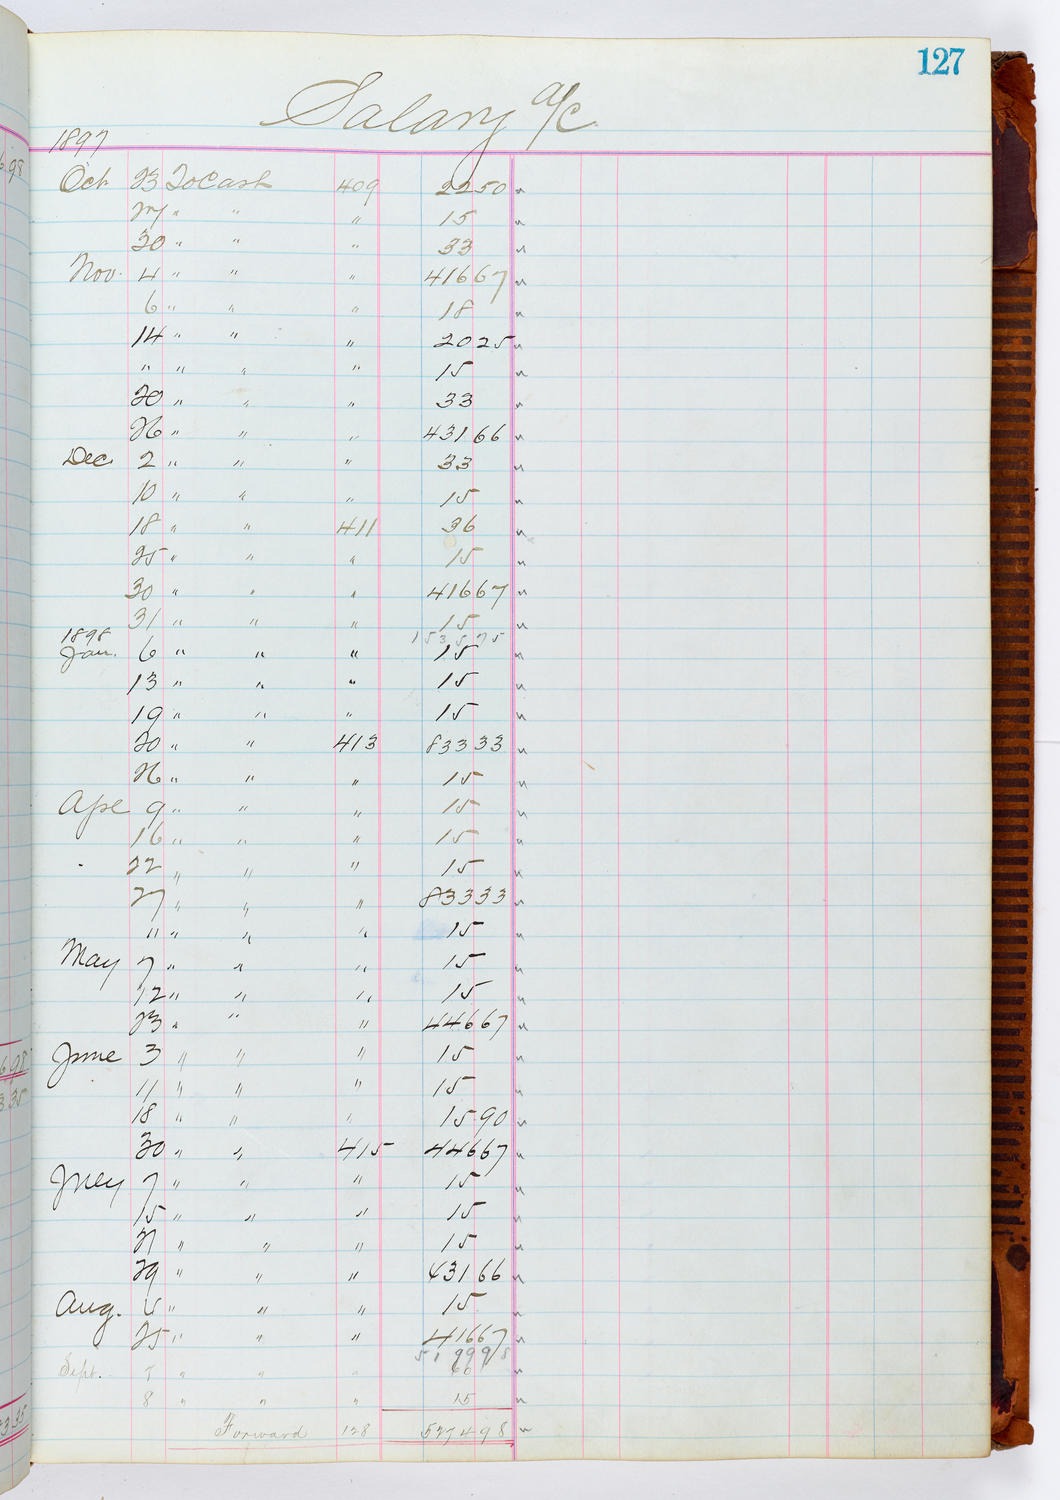 127
Salary a/c
1897
Oct 23 To Cash 409 22 50
27 " " " 15
30 " " " 33
Nov. 4 " " " 416 67
6 " " " 18
14 " " " 20 25
" " " " 15
20 " " " 33
26 " " " 431 66
Dec. 2 " " " 33
10 " " " 15
18 " " 411 36
25 " " " 15
30 " " " 416 67
31 " " " 15
1535 75
1898
Jan. 6 " " " 15
13 " " " 15
19 " " " 15
20 " " 413 833 33
26 " " " 15
Apr 9 " " " 15
16 " " " 15
22 " " " 15
27 " " " 833 33
" " " " 15
May 7 " " " 15
12 " " " 15
23 " " " 446 67
June 3 " " " 15
11 " " " 15
18 " " " 15 90
30 " " 415 446 67
July 7 " " " 15
15 " " " 15
21 " " " 15
29 " " " 431 66
Aug. 5 " " " 15
25 " " " 416 67
5199 98
Sept. " " " 60
8 " " " 15
Forward 128 5274 98